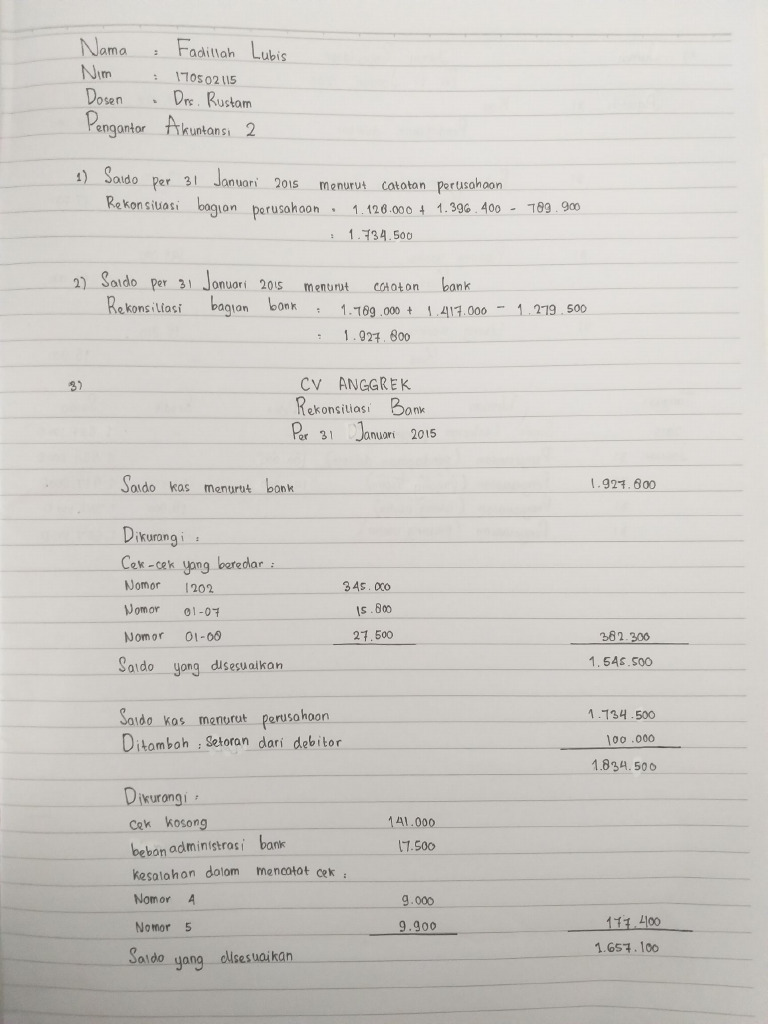 Nama : Fadillah Lubis
Nim : 170502115
Dosen : Drs. Rustam
Pengantar Akuntansi 2
1) Saldo per 31 Januari 2015 menurut catatan perusahaan
Rekonsiliasi bagian perusahaan = 1.128.000 + 1.396.400 - 789.900
= 1.734.500
2) Saldo per 31 Januari 2015 menurut catatan bank
Rekonsiliasi bagian bank = 1.789.000 + 1.417.000 - 1.279.500
= 1.927.800
3) CV ANGGREK
Rekonsiliasi Bank
Per 31 Januari 2015
Saldo kas menurut bank 1.927.800
Dikurangi :
Cek-cek yang beredar :
Nomor 1202 345.000
Nomor 01-07 15.800
Nomor 01-08 27.500 382.300
Saldo yang disesuaikan 1.545.500
Saldo kas menurut perusahaan 1.734.500
Ditambah : Setoran dari debitor 100.000
1.834.500
Dikurangi :
cek kosong 141.000
beban administrasi bank 17.500
kesalahan dalam mencatat cek :
Nomor 4 9.000
Nomor 5 9.900 177.400
Saldo yang disesuaikan 1.657.100